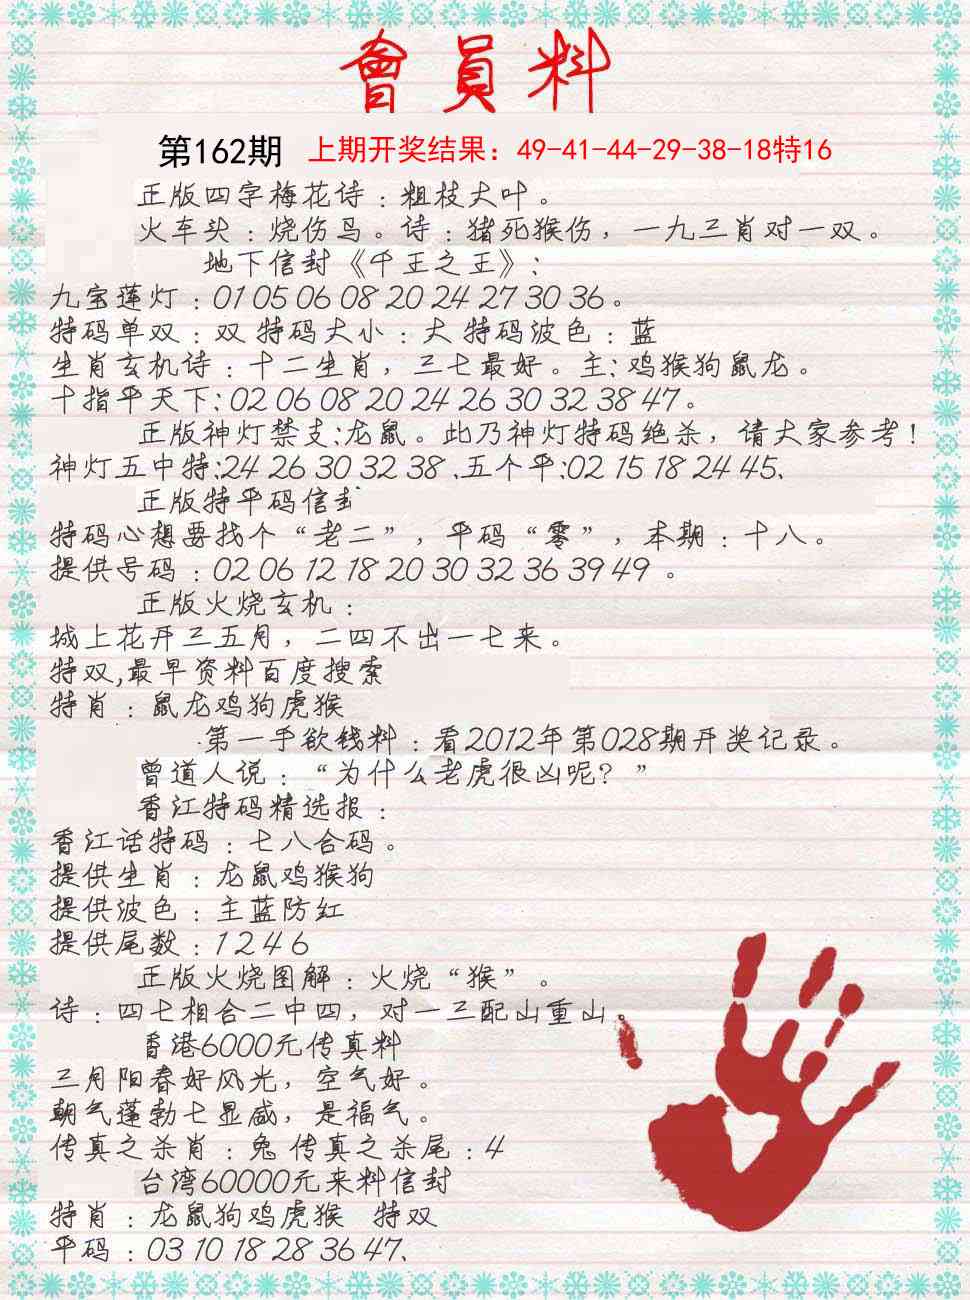 會員料
第162期 上期开奖结果：49-41-44-29-38-18特16
正版四字梅花诗：粗枝大叶。
火车头：烧伤鸟。诗：猪死猴伤，一九三肖对一双。
地下信封《千王之王》：
九宝莲灯：01 05 06 08 20 24 27 30 36。
特码单双：双 特码大小：大 特码波色：蓝
生肖玄机诗：十二生肖，三七最好。主：鸡猴狗鼠龙。
十指平天下：02 06 08 20 24 26 30 32 38 47。
正版神灯禁支：龙鼠。此乃神灯特码绝杀，请大家参考！
神灯五中特：24 26 30 32 38 .五个平：02 15 18 24 45.
正版特平码信封
特码心想要找个“老二”，平码“零”，本期：十八。
提供号码：02 06 12 18 20 30 32 36 39 49 。
正版火烧玄机：
城上花开三五月，二四不出一七来。
特双,最早资料百度搜索
特肖：鼠龙鸡狗虎猴
.第一手欲钱料：看2012年第028期开奖记录。
曾道人说：“为什么老虎很凶呢？”
香江特码精选报：
香江话特码：七八合码。
提供生肖：龙鼠鸡猴狗
提供波色：主蓝防红
提供尾数：1 2 4 6
正版火烧图解：火烧“猴”。
诗：四七相合二中四，对一三配山重山。
香港6000元传真料
三月阳春好风光，空气好。
朝气蓬勃七显威，是福气。
传真之杀肖：兔 传真之杀尾：4
台湾60000元来料信封
特肖：龙鼠狗鸡虎猴 特双
平码：03 10 18 28 36 47.